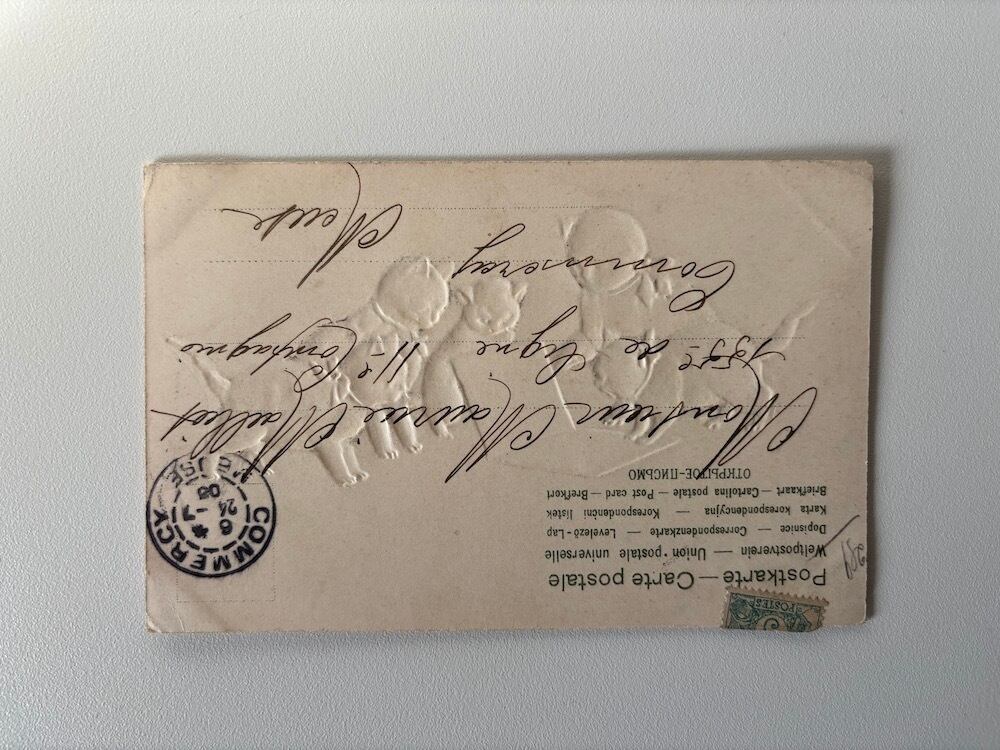 POSTES
Postkarte — Carte postale
Weltpostverein — Union postale universelle
Dopisnice — Correspondenzkarte — Levelező-Lap
Karta korespondencyjna — Korespondenční listek
Briefkaart — Cartolina postale — Post card — Brefkort
ОТКРЫТОЕ-ПИСЬМО
COMMERCY
6 *
24 -7
MEUSE
Monsieur Maurice
155e de Ligne 11e Compagnie
Commercy
Meuse